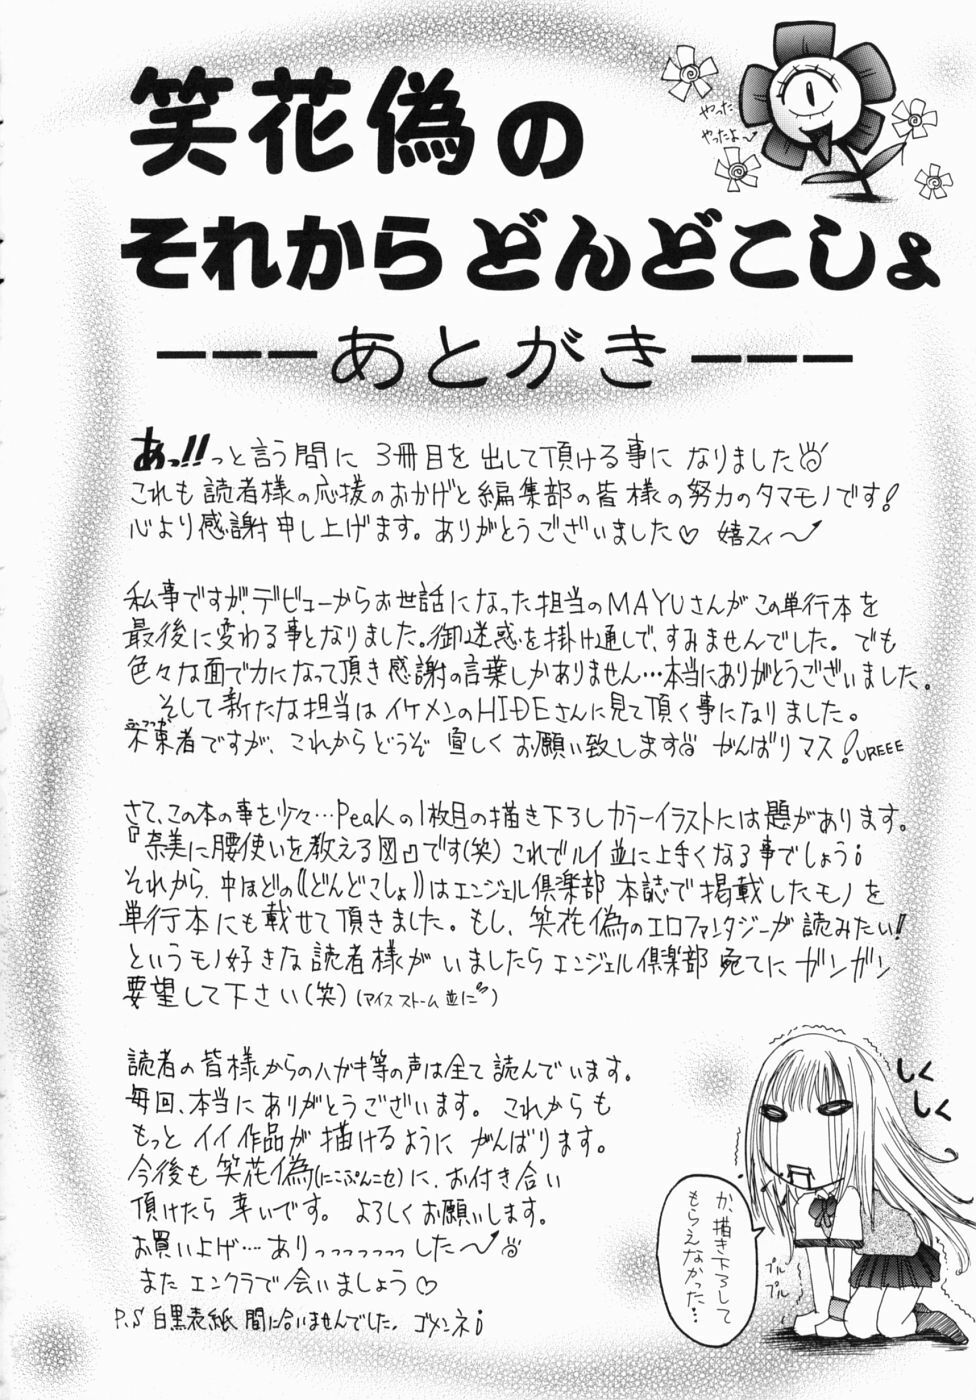 笑花偽の
それからどんどこしょ
---あとがき---
やった
やったよ～
あっ!!っと言う間に 3冊目を出して頂ける事になりました
これも読者様の応援のおかげと編集部の皆様の努力のタマモノです!
心より感謝申し上げます。ありがとうございました♡ 嬉スィ〜
私事ですが、デビューからお世話になった担当のMAYUさんがこの単行本を
最後に変わる事となりました。御迷惑を掛け通しで、すみませんでした。でも
色々な面で力になって頂き感謝の言葉しかありません…本当にありがとうございました。
そして新たな担当はイケメンのHIDEさんに見て頂く事になりました。
不束者ですが、これからどうぞ宜しくお願い致します がんばりマス! UREEE
さて、この本の事を少々…Peakの1枚目の描き下ろしカラーイラストには題があります。
『奈美に腰使いを教える図』です(笑) これでルイ並に上手くなる事でしょう!
それから、中ほどの《どんどこしょ》はエンジェル倶楽部 本誌で掲載したモノを
単行本にも載せて頂きました。もし、笑花偽のエロファンタジーが読みたい!!
というモノ好きな読者様がいましたらエンジェル倶楽部 宛てにガンガン
要望して下さい(笑) (アイス ストーム並に)
読者の皆様からのハガキ等の声は全て読んでいます。
毎回、本当にありがとうございます。これからも
もっとイイ作品が描けるようにがんばります。
今後も笑花偽(にこぷんニセ)に、お付き合い
頂けたら幸いです。よろしくお願いします。
お買い上げ…ありっっっっっっした〜
またエンクラで会いましょう♡
P.S 白黒表紙 間に合いませんでした。ゴメンネ!
しく
しく
か、描き下ろして
もらえなかった…
プル
プル